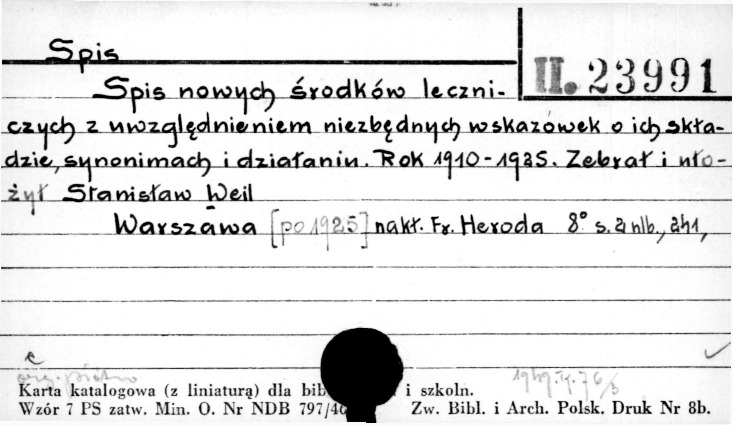 Spis
II. 23991
Spis nowych środków leczni-
czych z uwzględnieniem niezbędnych wskazówek o ich skła-
dzie, synonimach i działaniu. Rok 1910-1925. Zebrał i uło-
żył Stanisław Weil
Warszawa [po 1925] nakł. Fr. Heroda 8° s. 2 nlb., 241,
Karta katalogowa (z liniaturą) dla bib i szkoln.
Wzór 7 PS zatw. Min. O. Nr NDB 797/4 Zw. Bibl. i Arch. Polsk. Druk Nr 8b.